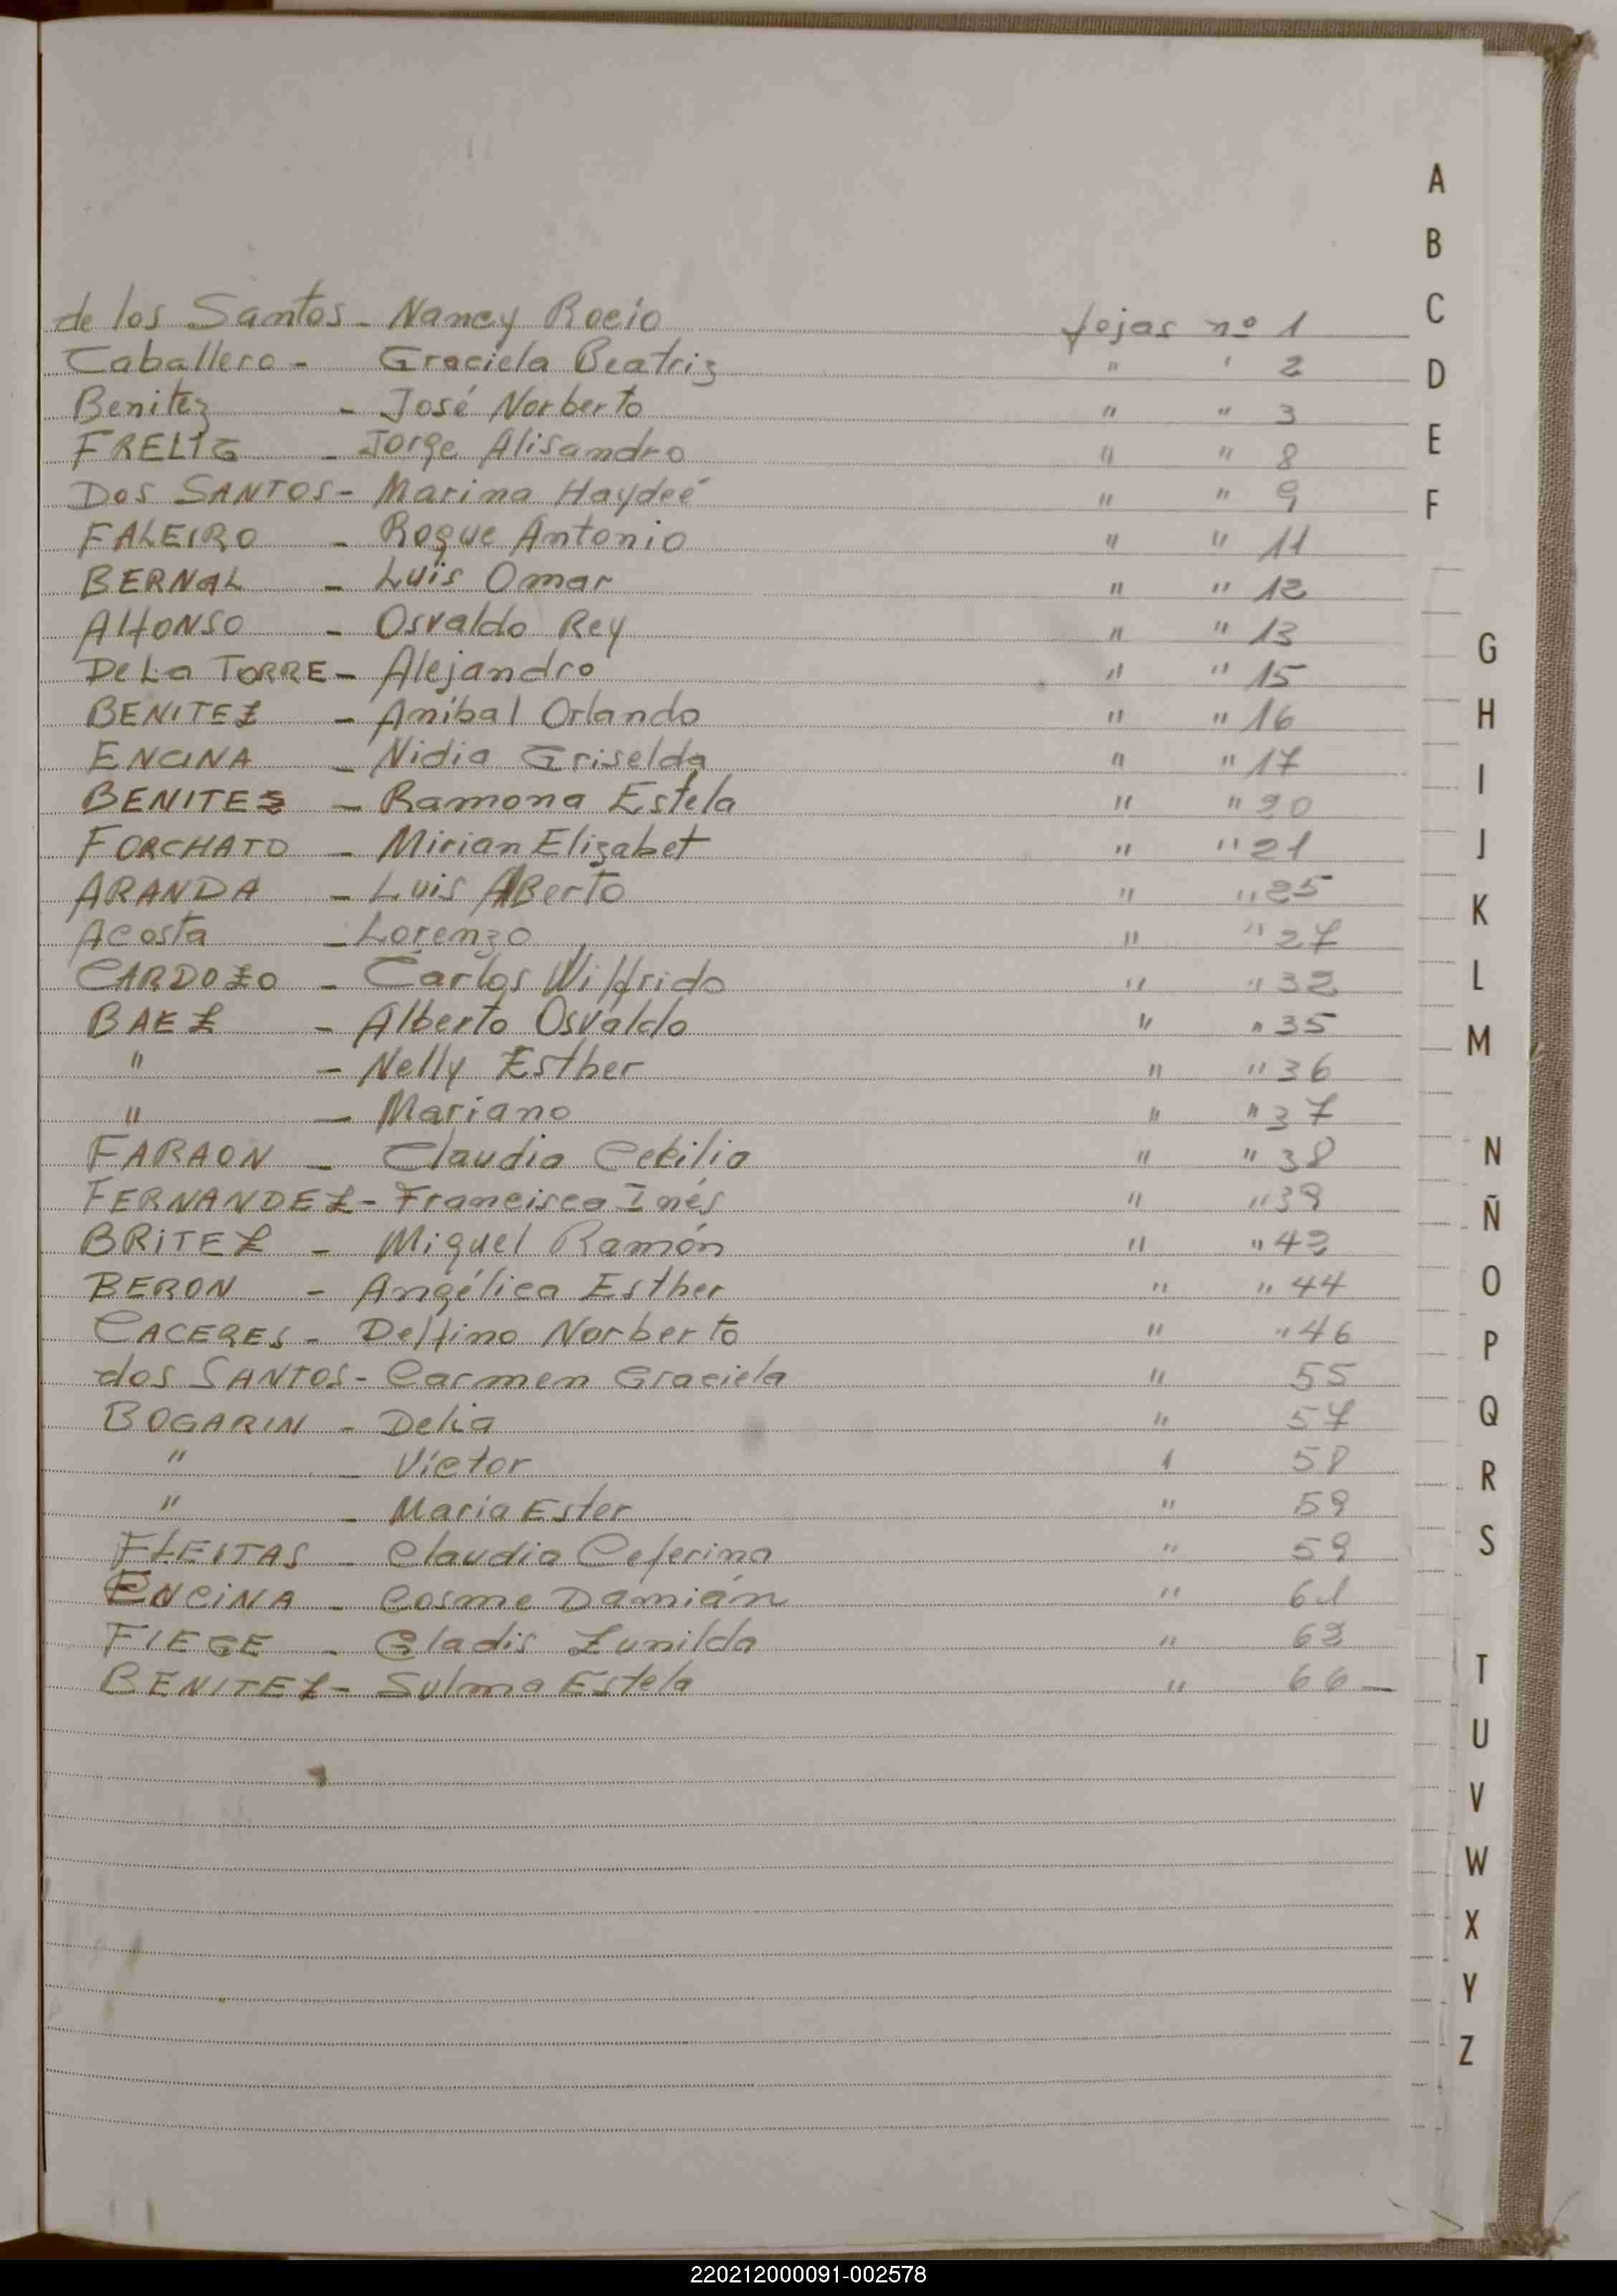 de los Santos - Nancy Rocio fojas nº 1
Caballero - Graciela Beatriz " ' 2
Benitez - José Norberto " " 3
FRELIG - Jorge Alisandro " " 8
Dos SANTOS - Marina Haydeé " " 9
FALEIRO - Roque Antonio " " 11
BERNAL - Luis Omar " " 12
Alfonso - Osvaldo Rey " " 13
De La TORRE - Alejandro " " 15
BENITEZ - Anibal Orlando " " 16
ENCINA - Nidia Griselda " " 17
BENITEZ - Ramona Estela " " 20
FORCHATO - Mirian Elizabet " " 21
ARANDA - Luis Alberto " " 25
Acosta - Lorenzo " " 27
CARDOZO - Carlos Wilfrido " " 32
BAEZ - Alberto Osvaldo " " 35
" - Nelly Esther " " 36
" - Mariano " " 37
FARAON - Claudia Cecilia " " 38
FERNANDEZ - Francisca Inés " " 39
BRITEZ - Miguel Ramón " " 43
BERON - Angélica Esther " " 44
CACERES - Delfino Norberto " " 46
dos SANTOS - Carmen Graciela " 55
BOGARIN - Delia " 57
" - Victor ' 58
" - Maria Ester " 59
FLEITAS - Claudia Ceferina " 59
ENCINA - Cosme Damián " 61
FIEGE - Gladis Zunilda " 63
BENITEZ - Sulma Estela " 66 -
A
B
C
D
E
F
G
H
I
J
K
L
M
N
Ñ
O
P
Q
R
S
T
U
V
W
X
Y
Z
220212000091-002578